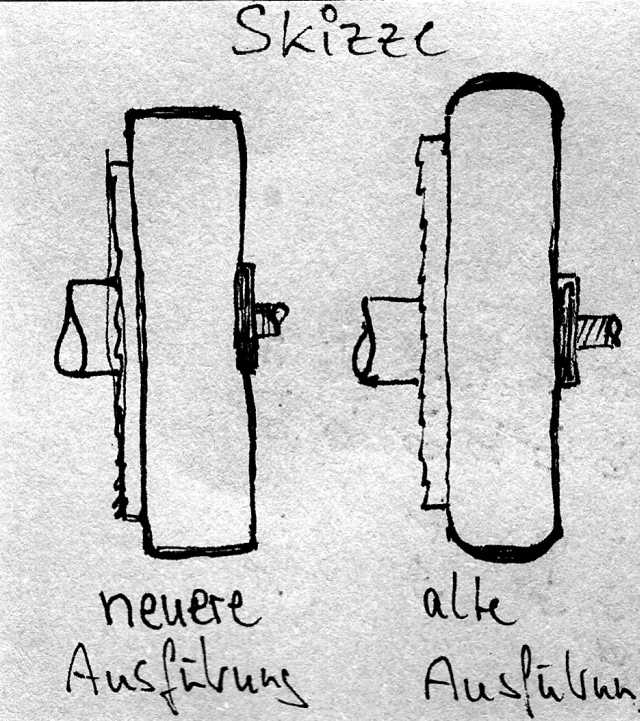 Skizze
neuere
Ausführung
alte
Ausführun